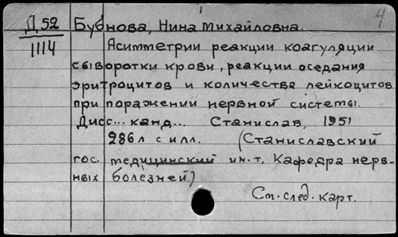 4
Д 52 Бубнова, Нина Михайловна.
1114 Асимметрии реакции коагуляции
сыворотки крови, реакции оседания
эритроцитов и количества лейкоцитов
при поражении нервной системы.
Дисс... канд... Станислав, 1951
286 л с илл. (Станиславский
гос. медицинский ин-т. Кафедра нерв-
ных болезней)
См. след. карт.